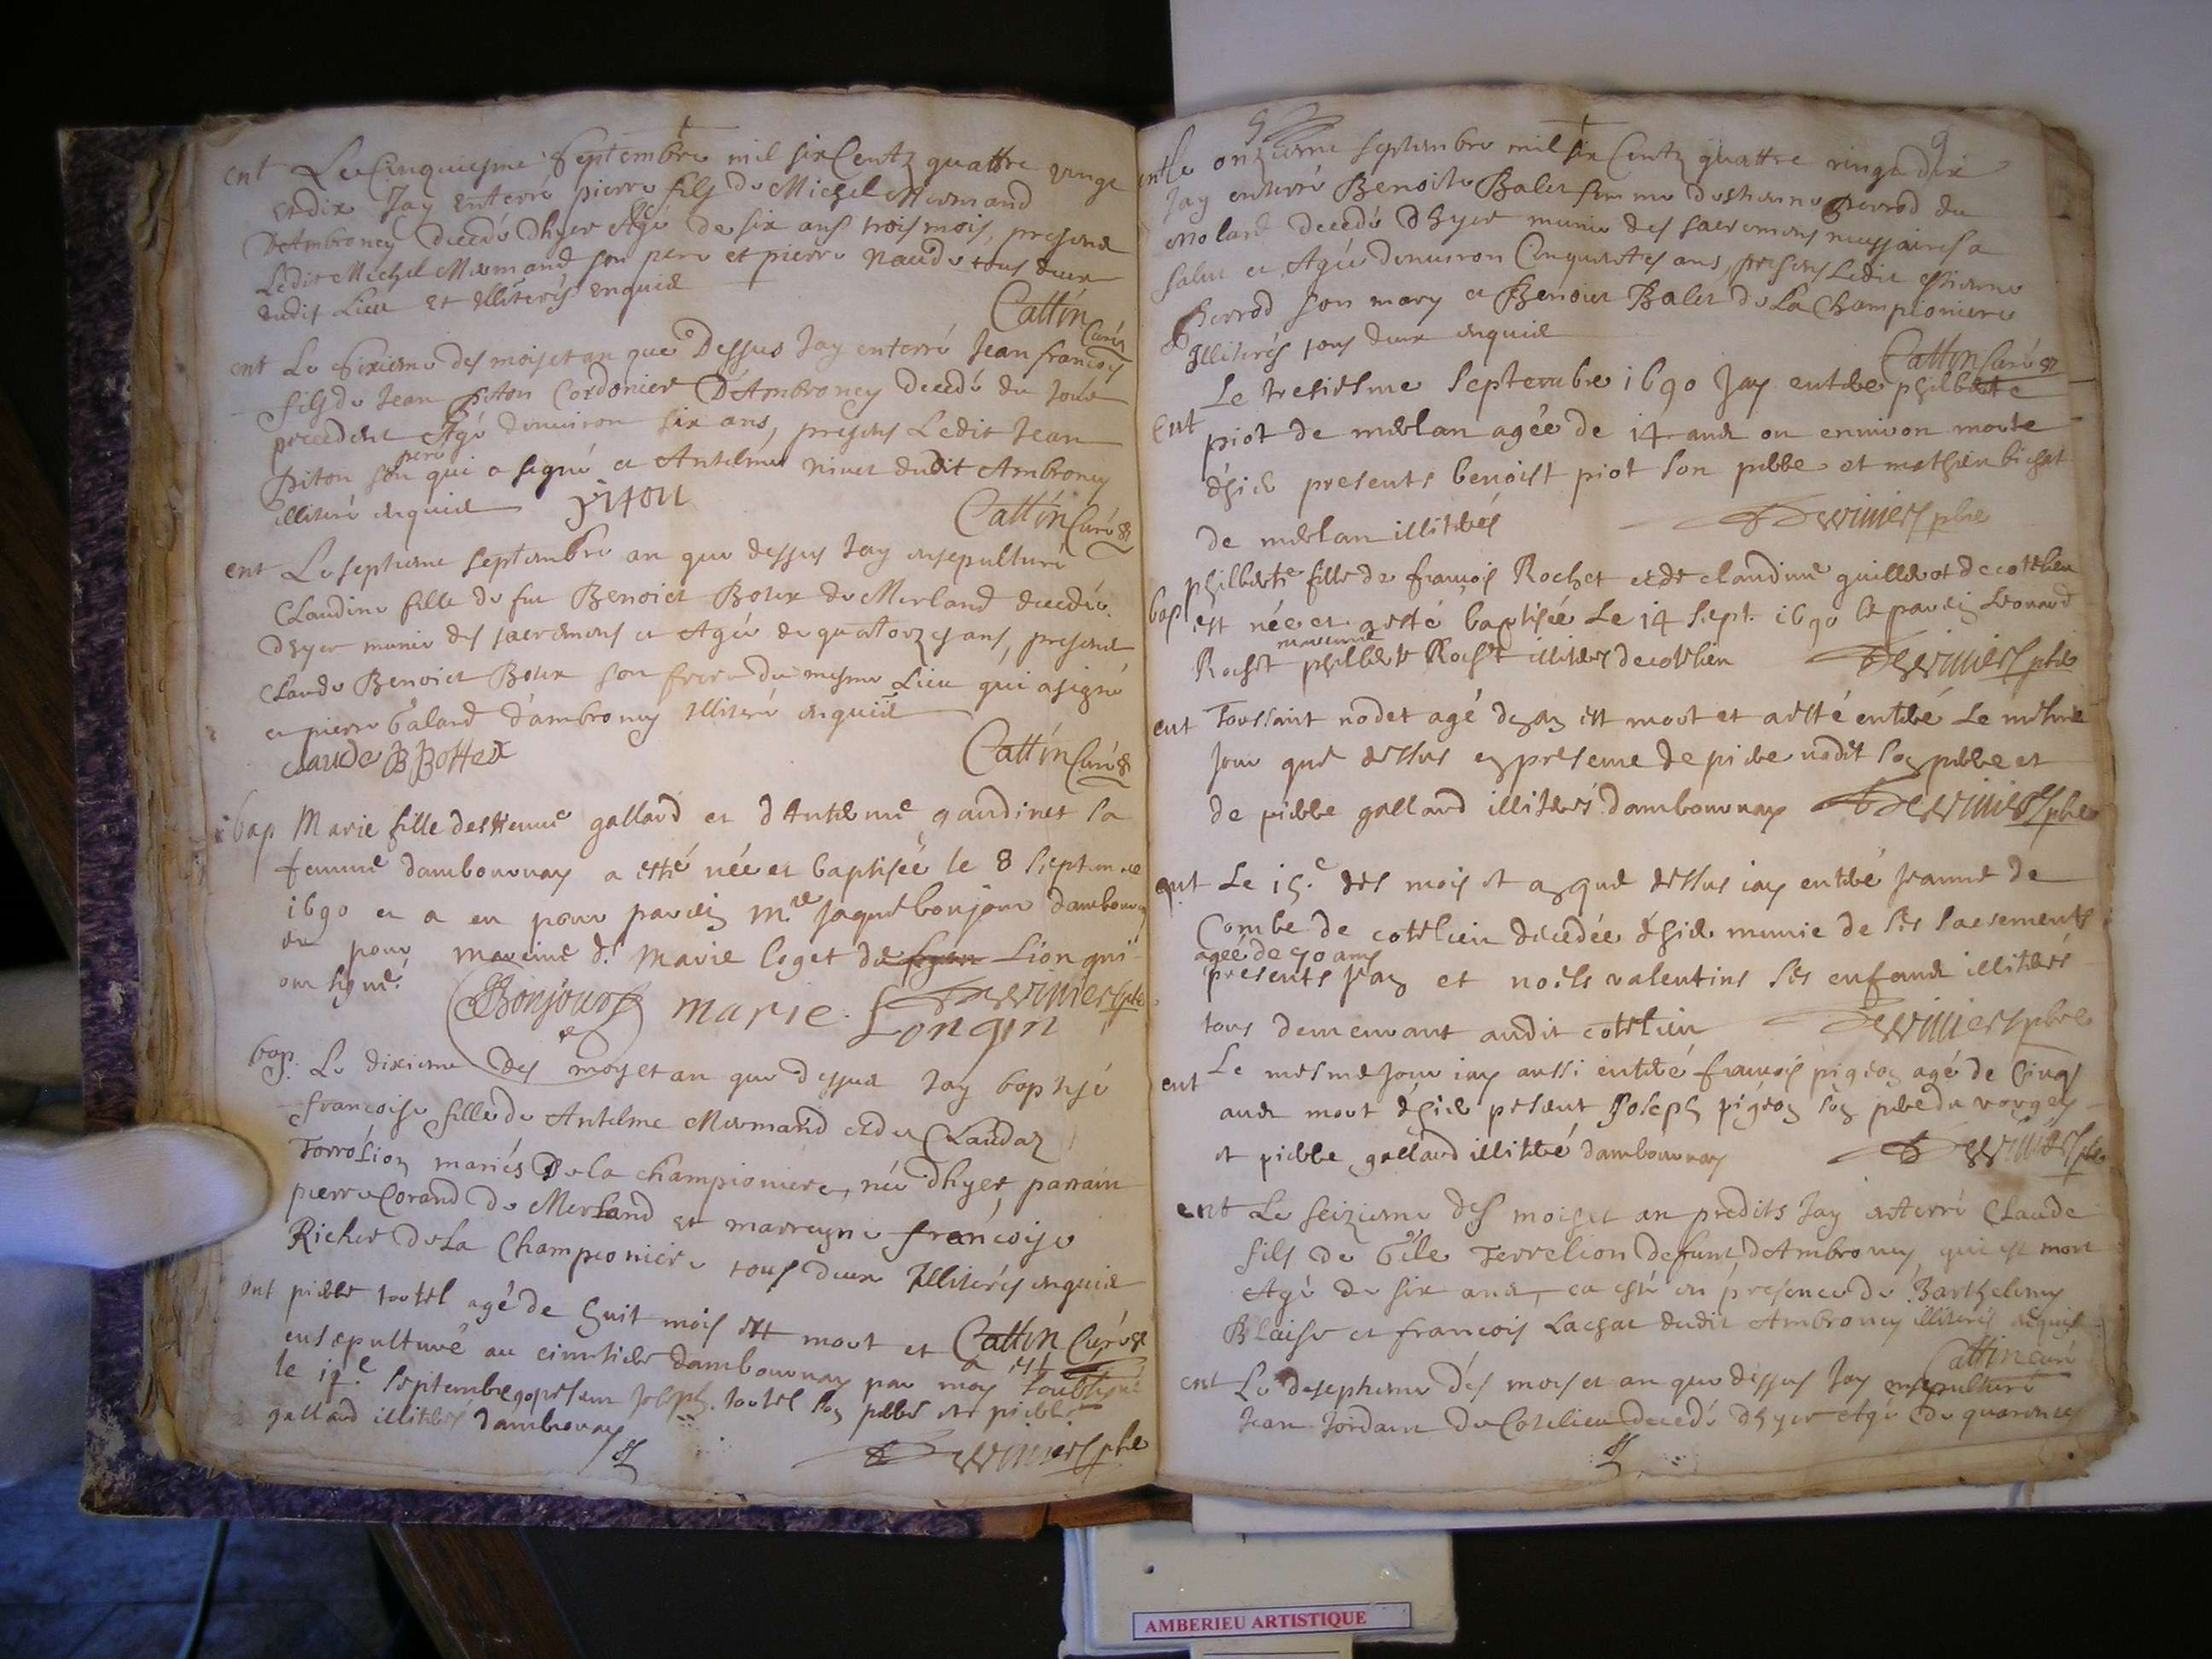 ent Le Cinquiesme Septembre mil six Centz quattre vingt
et dix Jay enterré pierre fils de Michel Mermand
D'Ambroney decedé dhyer Agé de six ans trois mois, present
Ledit Michel Mermand son pere et pierre Naude tous deux
dudit Lieu et Illiterés enquis
Cattin Curé
ent Le sixieme des mois et an que Dessus Jay enterré Jean francois
fils de Jean Piton Cordonier D'Ambroney decedé du Jour
precedent Agé denviron six ans, presens Ledit Jean
Piton son pere qui a signé et Antelme nivet dudit Ambroney
illiteré enquis piton
Cattin Curé
ent Le septieme Septembre an que dessus Jay ensepulturé
Claudine fille de feu Benoict Botex de Merland decedée
dhyer munie des sacremens et Agée de quatorze ans, present
Claude Benoict Botex son frere du mesme Lieu qui a signé
et pierre Galand d'ambroney Illiteré enquis
claude B Bottex
Cattin Curé
bap Marie fille destienne gallard et d'Antelme gaudinet sa
femme dambournay a esté née et baptisée le 8 septembre
1690 et a eu pour parein mre Jaque boujour dambourn
et pour mareine d. Marie loget de lion qui
ont signé
Bonjour marie Longin
pbre
bap. Le dixieme des moys et an que dessus Jay baptisé
francoise fille de Antelme Mermand et de Claudaz
Terrelion mariés De la championiere, née dhyer, parrain
pierre Corand de Merland et marreyne francoise
Richer de La Championiere tous deux Illiterés enquis
Cattin Curé
ent pierre toutel agé de huit mois est mort et a esté
ensepulturé au cimetiere dambournay par moy
le septembre 90 present Joseph toutel son pere et pierre
galland illiterés dambournay
pbre
9
ent Le onzieme septembre mil six Centz quattre vingt dix
Jay enterré Benoite Balet femme destienne Perrod du
molard decedé dhyer munie des sacremens necessaires a
salut et Agée denviron Cinquantes ans, presens Ledit estienne
Perrod son mary et Benoict Balet de La Championiere
Illiterés tous deux enquis
Cattin Curé
ent Le tresiesme septembre 1690 Jay enterré philberte
piot de merlan agée de 14 ans ou environ morte
d'hier presents benoist piot son pere et mathieu bichat
de merlan illiterés
pbre
bap philberte fille de francois Rochet et de claudine guillerot de cotelieu
est née et a esté baptisée Le 14 sept. 1690 le parein Leonard
Rochet mareine philberte Rochet illiterés de cotelieu
pbre
ent Toussaint nodet agé d'un an est mort et a esté enterré Le mesme
jour que dessus en presence de pierre nodet son pere et
de pierre galland illiterés dambournay
pbre
ent Le 15e des mois et an que dessus iay enterré Jeanne de
Combe de cotelieu decedée d'hier munie de ses sacrements
agée de 50 ans
presents Jean et noels valentins ses enfans illiterés
tous demeurant audit cotelieu
pbre
ent Le mesme Jour iay aussi enterré francois pigeon agé de cinq
ans mort d'hier present Joseph pigeon son pere du vorgey
et pierre galland illiteré dambournay
pbre
ent Le seizieme des mois et an predits Jay enterré Claude
fils de Gile Terrelion defunt d'Ambroney, qui est mort
Agé de six ans, ca esté en presence de Barthelemy
Blaise et francois Lachat dudit Ambroney illiterés enquis
Cattin curé
ent Le desepthieme des mois et an que dessus Jay ensepulturé
Jean Jordain de Cotelieu decedé dhyer Agé de quarente
AMBERIEU ARTISTIQUE